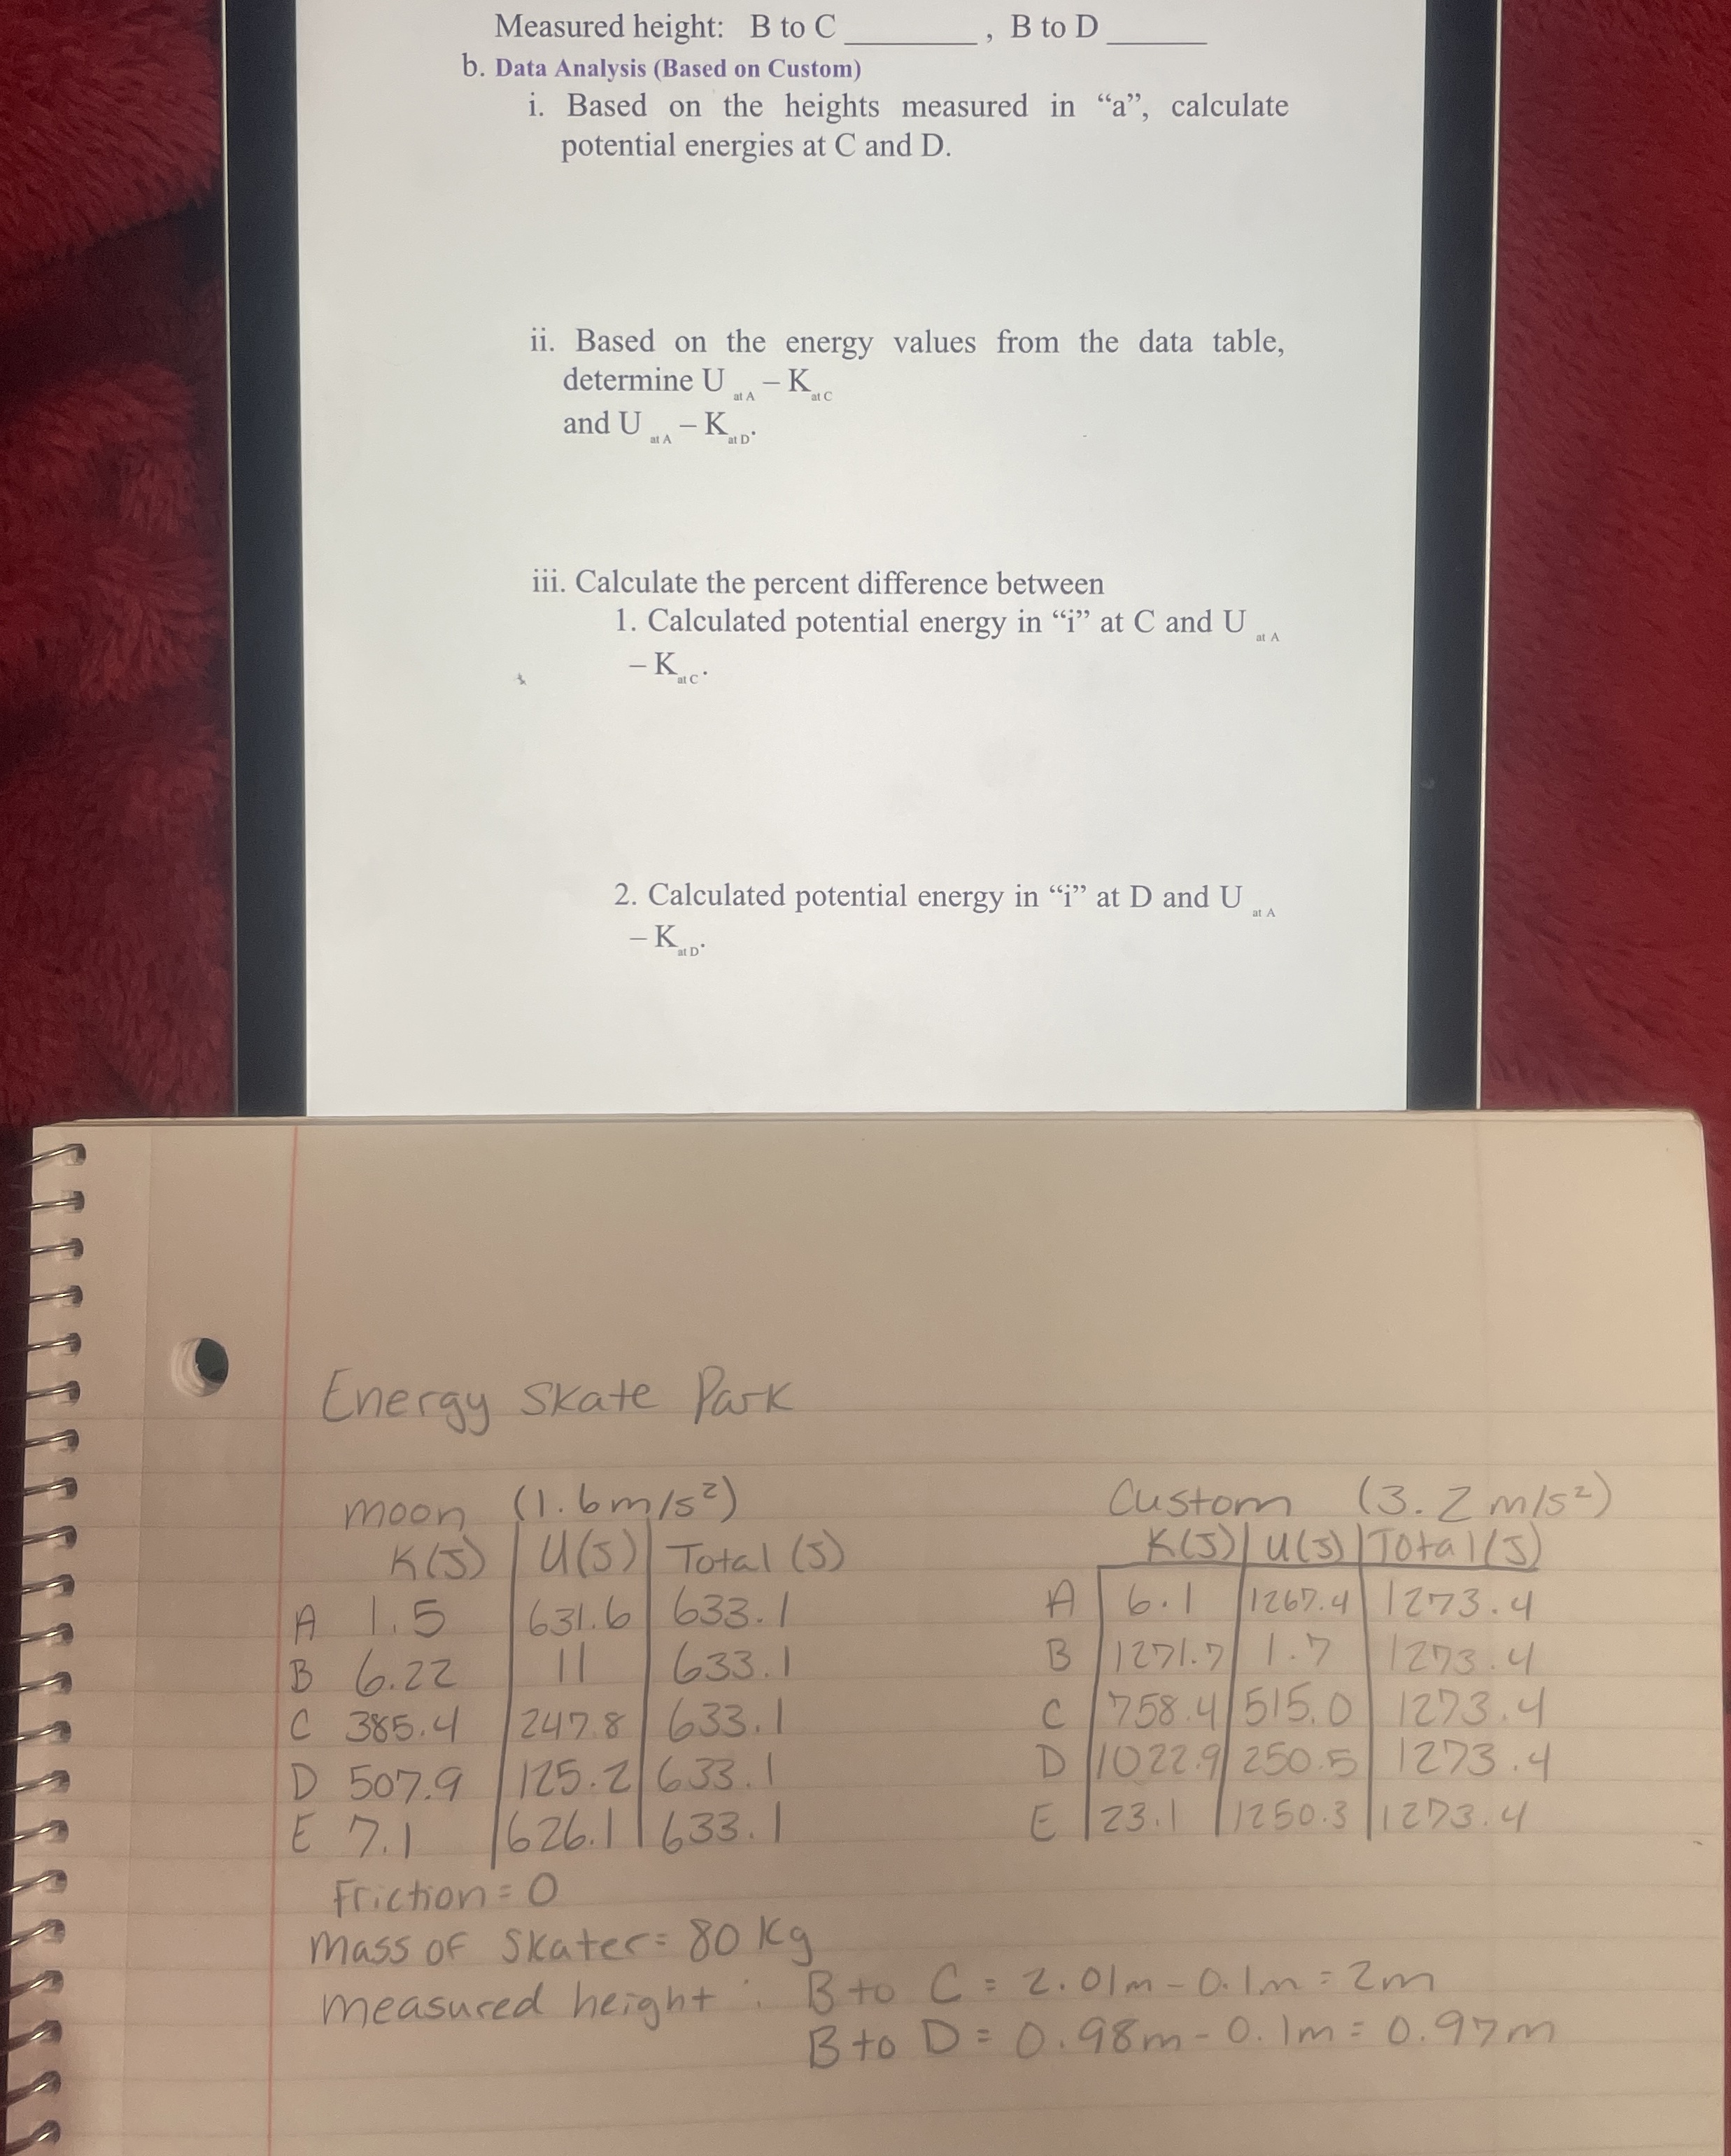 Measured height: B to C ________, B to D ______
b. Data Analysis (Based on Custom)
i. Based on the heights measured in “a”, calculate
potential energies at C and D.
ii. Based on the energy values from the data table,
determine U at A – K at C
and U at A – K at D.
iii. Calculate the percent difference between
1. Calculated potential energy in “i” at C and U at A
– K at C.
2. Calculated potential energy in “i” at D and U at A
– K at D.
Energy Skate Park
moon (1.6m/s²)
K(J) U(J) Total (J)
A 1.5 631.6 633.1
B 6.22 11 633.1
C 385.4 247.8 633.1
D 507.9 125.2 633.1
E 7.1 626.1 633.1
Custom (3.2 m/s²)
K(J) U(J) Total(J)
A 6.1 1267.4 1273.4
B 1271.7 1.7 1273.4
C 758.4 515.0 1273.4
D 1022.9 250.5 1273.4
E 23.1 1250.3 1273.4
Friction = 0
Mass of Skater = 80 Kg
measured height : B to C = 2.01m - 0.1m = 2m
B to D = 0.98m - 0.1m = 0.97m